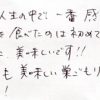 人生の中で、一番感
を食べたのは初めて
、美味しいです!!
も美味しい巣ごもり
!